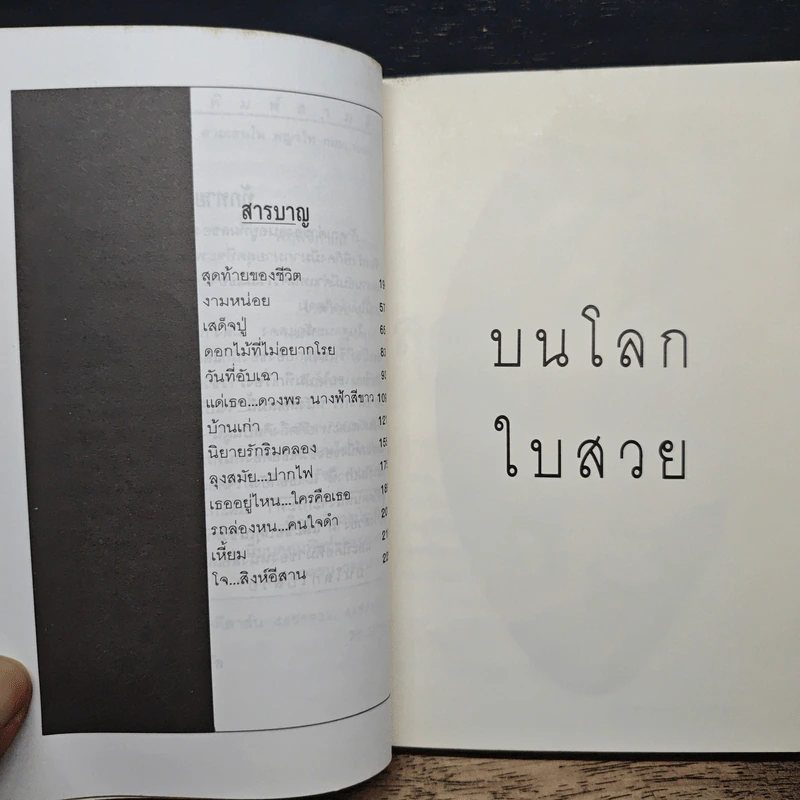 สารบาญ
สุดท้ายของชีวิต 19
งามหน่อย 57
เสด็จปู่
ดอกไม้ที่ไม่อยากโรย
วันที่อับเฉา
แด่เธอ...ดวงพร นางฟ้าสีขาว
บ้านเก่า
นิยายรักริมคลอง
ลุงสมัย...ปากไฟ
เธออยู่ไหน...ใครคือเธอ
รถล่องหน...คนใจดำ
เหี้ยม
โจ...สิงห์อีสาน
บนโลก
ใบสวย